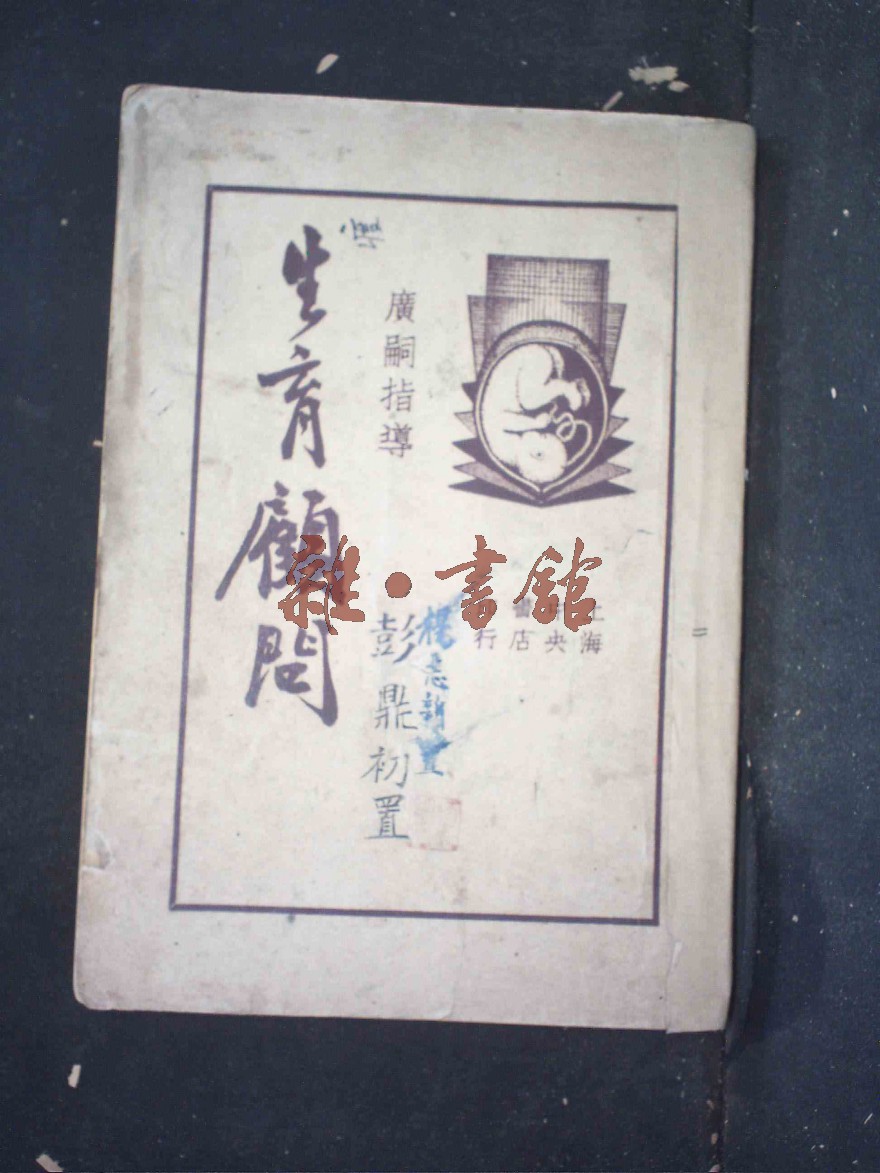 生育顧問
廣嗣指導
上海
中央
書店
行
彭鼎初置
雜·書館